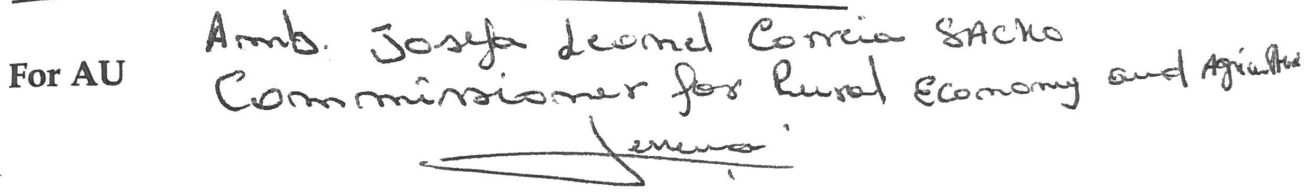 Amb. Josefa Leonel Correia SACKO
For AU
Commissioner for Rural Economy and Agriculture